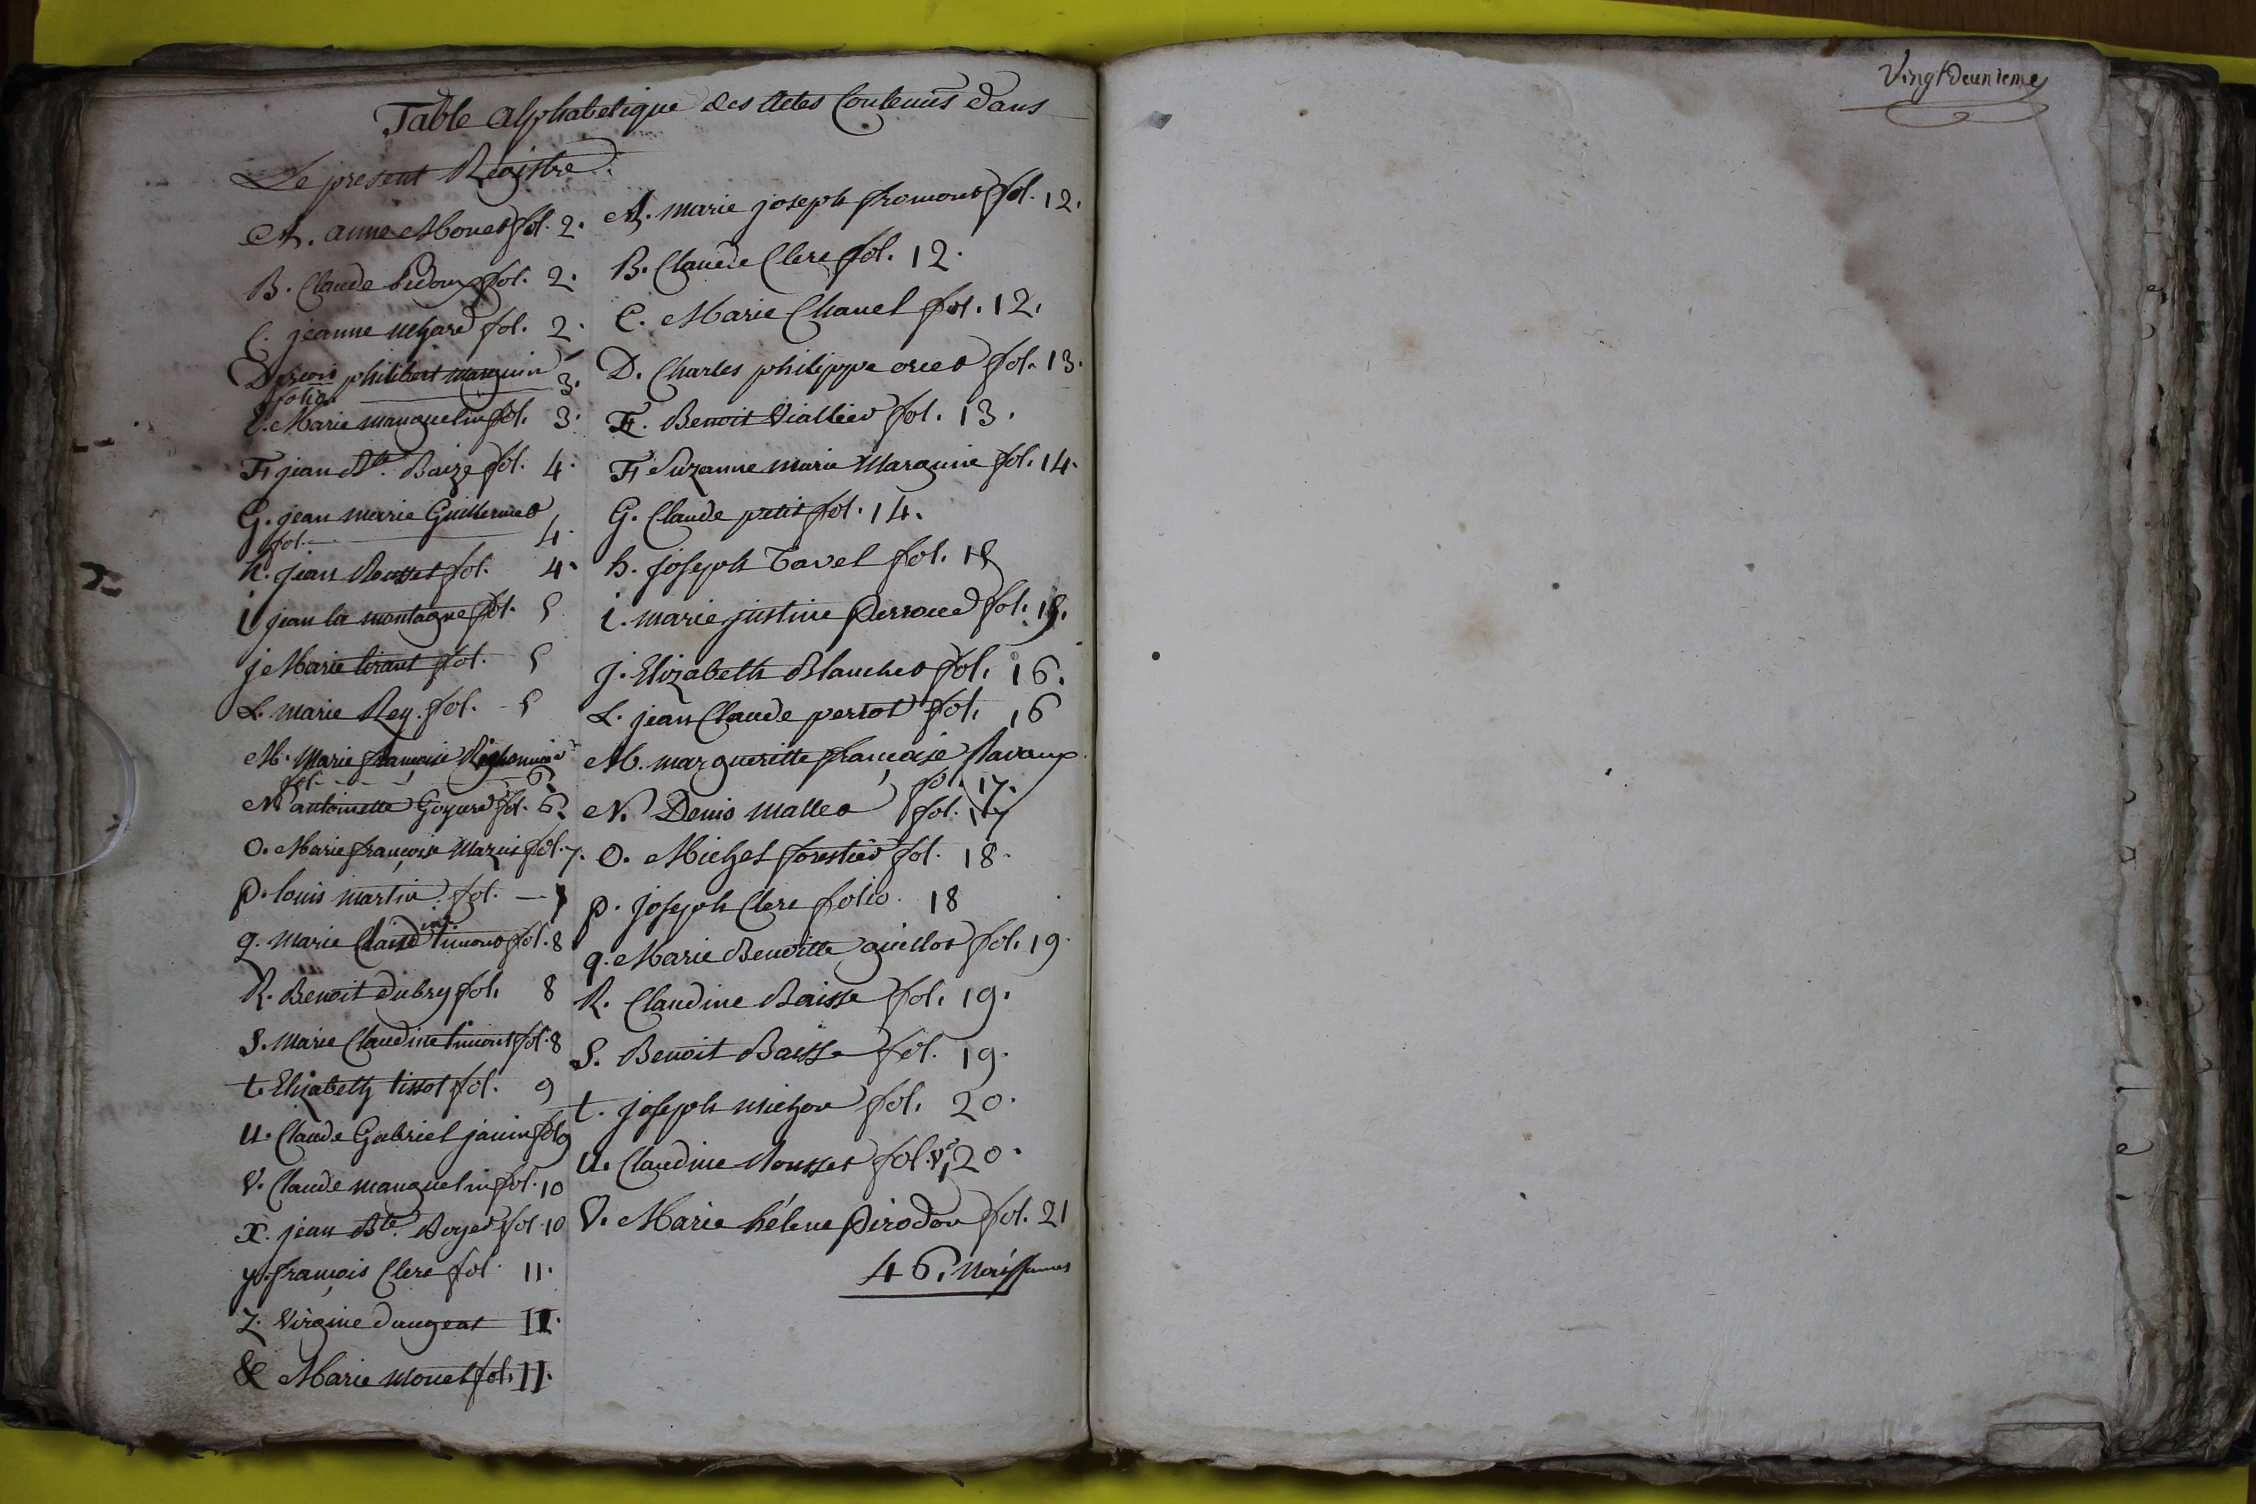 Table alphabetique des Actes Contenus dans
Le present Registre.
A. anne Monet fol. 2.
B. Claude bidoux fol. 2.
C. jeanne fol. 2.
D. philibert manguin
folio 3.
E. Marie manguelin fol. 3.
F. jean Bte. Baize fol. 4.
G. jean marie Guillermet
fol. 4.
h. jean Rousset fol. 4.
i jean la montagne fol. 5
j Marie tirant fol. 5
L. marie Rey. fol. 5
M. Marie françoise
fol. 6.
N antoinette Goyard fol. 6.
O. Marie françoise fol. 7.
p. louis martin. fol. 7
q. marie Claudine timont fol. 8
R. Benoit dubry fol. 8
S. Marie Claudine timont fol. 8
t. Elizabeth tissot fol. 9
U. Claude Gabriel janin fol 9
V. Claude manguelin fol. 10
X. jean Bte. Boyer fol. 10
y. françois Clerc fol. 11.
Z. Virginie daugeat 11.
& Marie Monet fol. 11.
A. Marie joseph fromont fol. 12.
B. Claude Clerc fol. 12.
C. Marie Chanel fol. 12.
D. Charles philippe fol. 13.
E. Benoit Viallier fol. 13.
F. Suzanne marie Marguine fol. 14.
G. Claude petit fol. 14.
h. joseph Tavel fol. 15
i. marie justine Perroud fol. 15.
j. Elizabeth Blanchet fol. 16.
L. jean Claude perrot fol. 16
M. margueritte françoise Ravaux
fol. 17.
N. Denis mallet fol. 17
O. Michel forestier fol. 18.
p. joseph Clerc folio. 18
q. Marie Benoitte guillot fol. 19.
R. Claudine Baisse fol. 19.
S. Benoit Baisse fol. 19.
t. joseph michon fol. 20.
U. Claudine Rousset fol. vo. 20.
V. Marie hélene Pirodon fol. 21
46. Naissances
Vingt Deuxieme